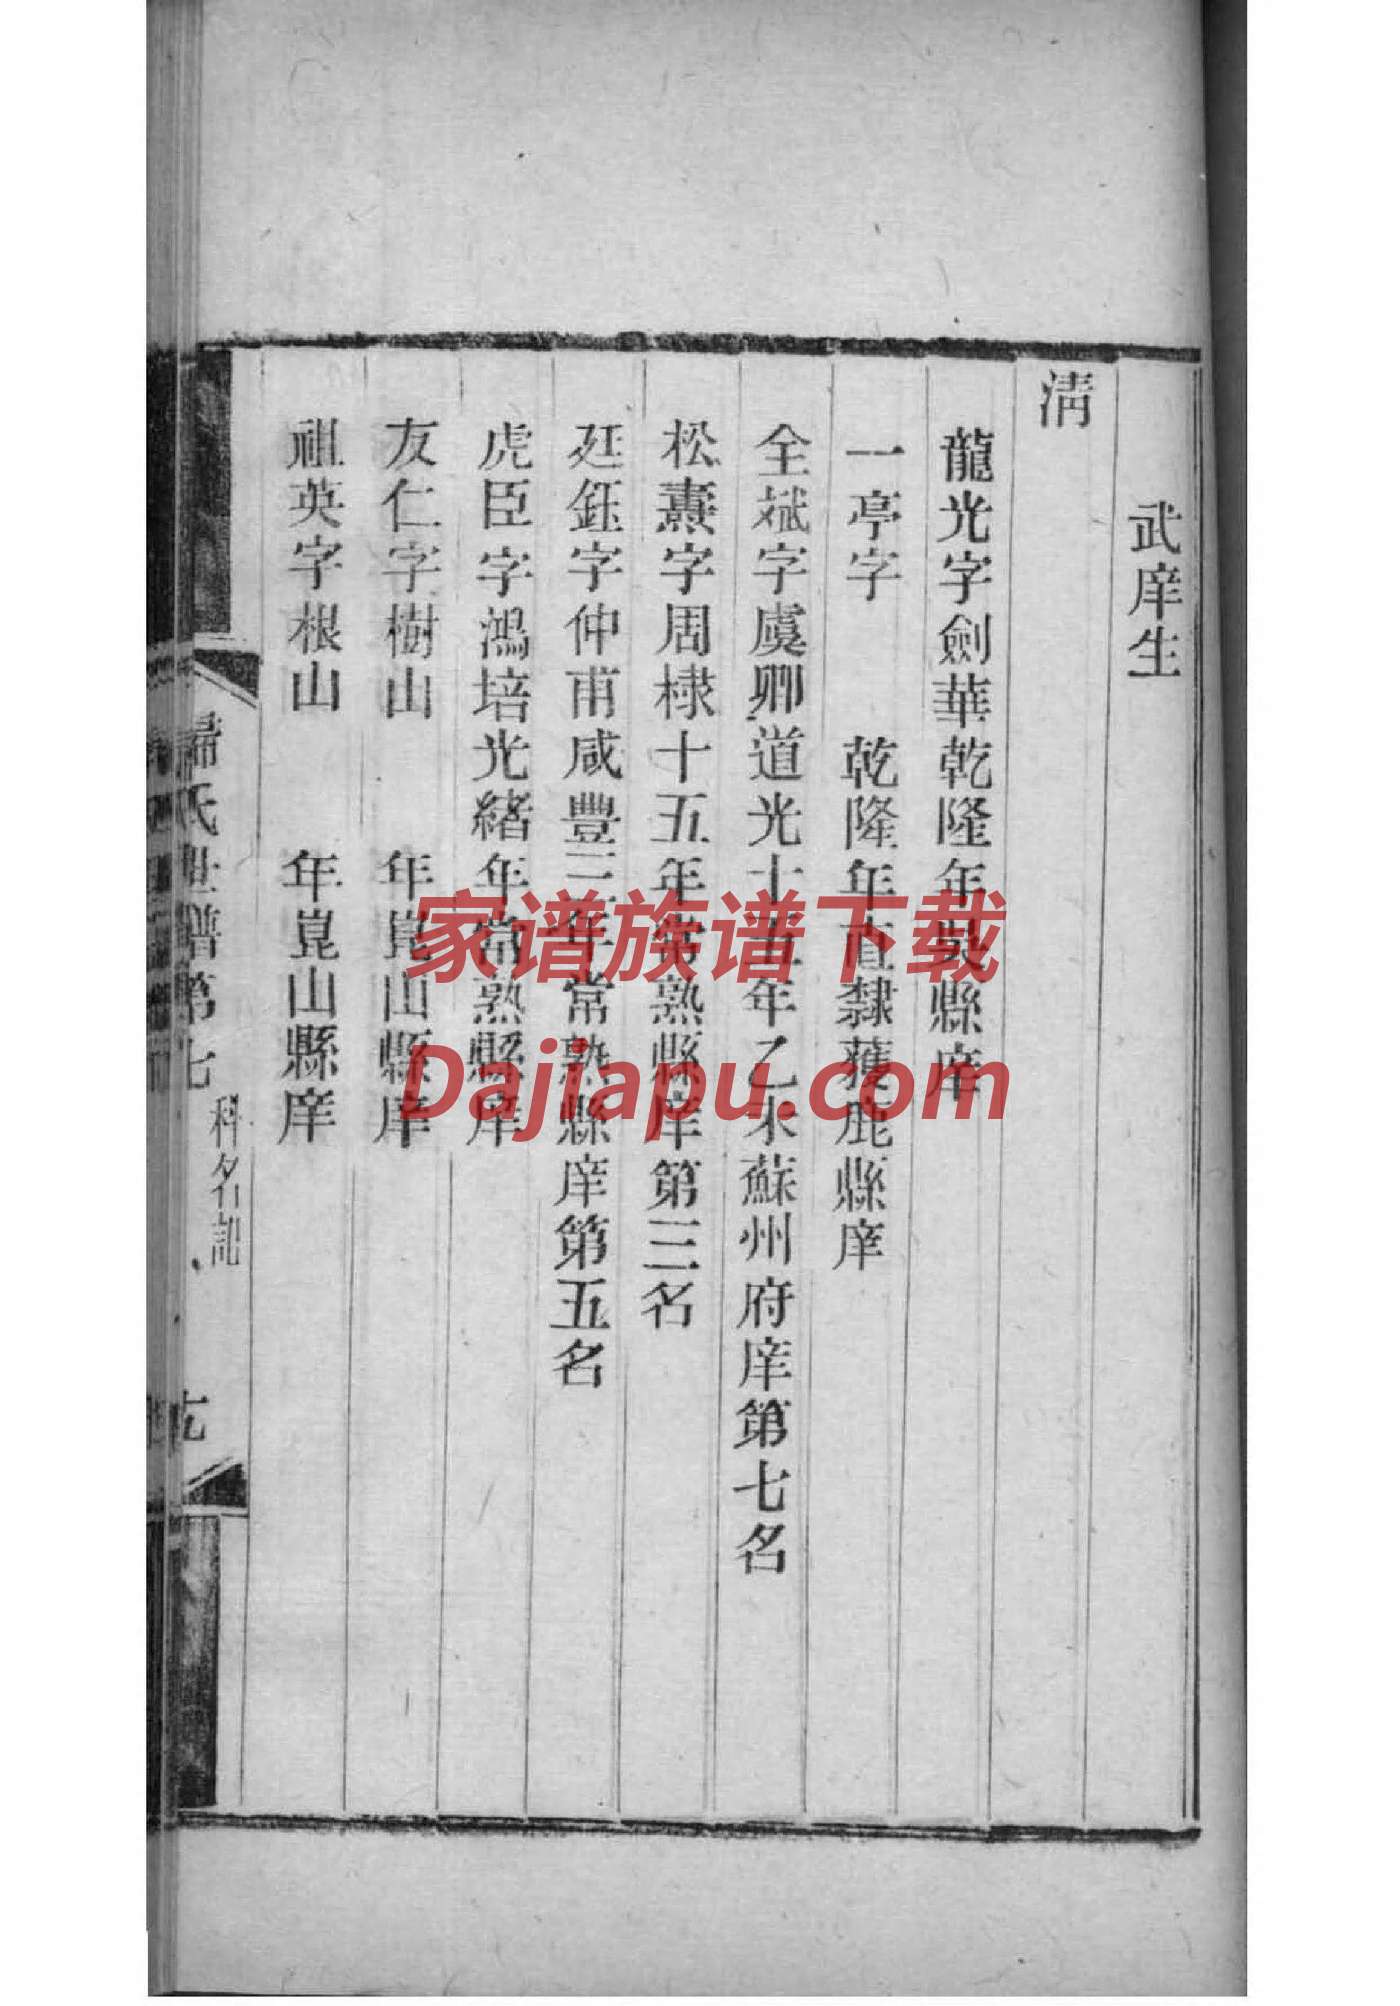 武庠生
淸
龍光字劍華乾隆年吳縣庠
一亭字　　乾隆年直隸獲鹿縣庠
全斌字虞卿道光十五年乙未蘇州府庠第七名
松燾字周棣十五年常熟縣庠第三名
廷鈺字仲甫咸豐三年常熟縣庠第五名
虎臣字鴻培光緒年常熟縣庠
友仁字樹山　　年崑山縣庠
祖英字根山　　年崑山縣庠
歸氏世譜第七
科名記
家谱族谱下载
Dajiapu.com